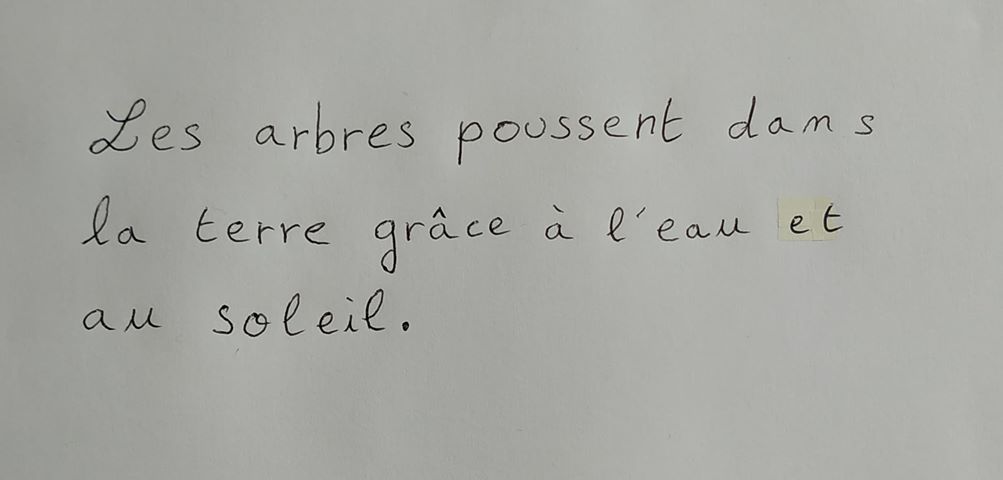 Les arbres poussent dans
la terre grâce à l'eau et
au soleil.